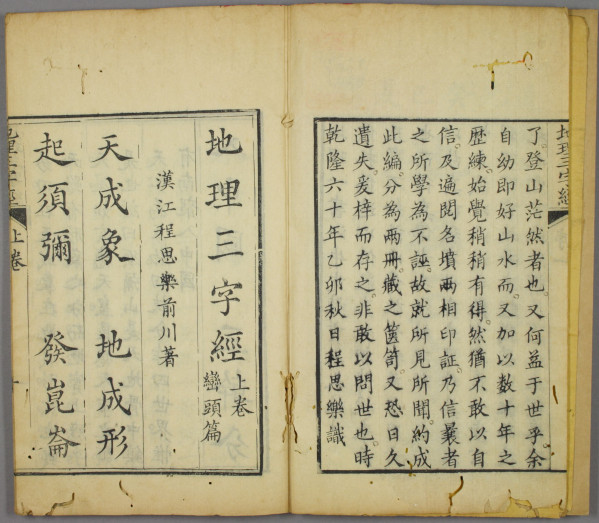 了登山茫然者也又何益于世乎余
自幼即好山水而又加以数十年之
歷練始覺稍稍有得然猶不敢以自
信及遍閱各墳兩相印証乃信曩者
之所學為不誣故就所見所聞約成
此編分為兩冊藏之篋笥又恐日久
遺失爰梓而存之非敢以問世也時
乾隆六十年乙卯秋日程思樂識
地理三字經 上卷 巒頭篇
漢江程思樂前川著
天成象 地成形
起須彌 發崑崙
地理三字經 上卷